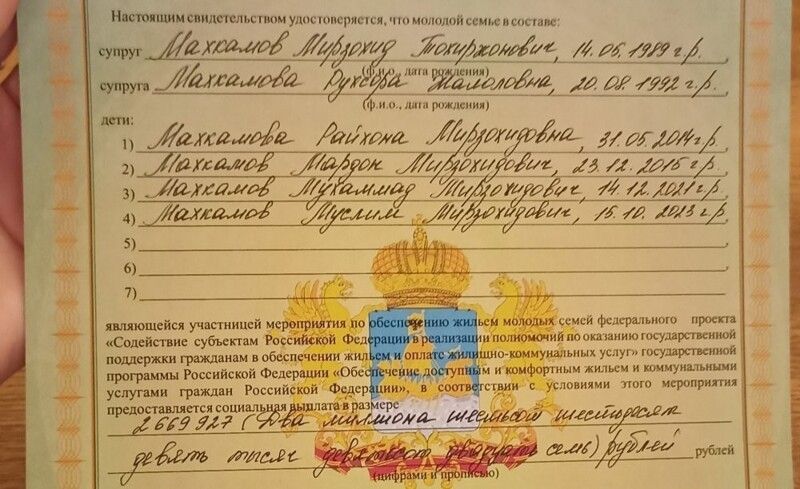 Настоящим свидетельством удостоверяется, что молодой семье в составе:
супруг Махкамов Мирзохид Тохиржонович, 14.05.1989 г.р.
(ф.и.о., дата рождения)
супруга Махкамова Рухсора Жамоловна, 20.08.1992 г.р.
(ф.и.о., дата рождения)
дети:
1) Махкамова Райхона Мирзохидовна, 31.05.2014 г.р.,
2) Махкамов Мардон Мирзохидович, 23.12.2015 г.р.,
3) Махкамов Мухаммад Мирзохидович, 14.12.2021 г.р.,
4) Махкамов Муслим Мирзохидович, 15.10.2023 г.р.,
5)
6)
7)
являющейся участницей мероприятия по обеспечению жильем молодых семей федерального проекта
«Содействие субъектам Российской Федерации в реализации полномочий по оказанию государственной
поддержки гражданам в обеспечении жильем и оплате жилищно-коммунальных услуг» государственной
программы Российской Федерации «Обеспечение доступным и комфортным жильем и коммунальными
услугами граждан Российской Федерации», в соответствии с условиями этого мероприятия
предоставляется социальная выплата в размере
2 669 927 (Два миллиона шестьсот шестьдесят
девять тысяч девятьсот двадцать семь) рублей рублей
(цифрами и прописью)